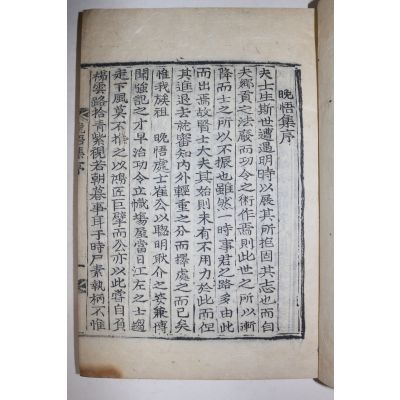 晩悟集序
夫士生斯世遭遇明時以展其所抱固其志也而自
夫鄉貢之法廢而功令之術作焉則此世之所以漸
降而士之所以不振也雖然一時事君之路多由此
而出焉故賢士大夫其始則未有不用力於此而但
其進退去就審知內外輕重之分而擇處之而已矣
惟我族祖 晩悟處士崔公以聰明耿介之姿兼博
聞強記之才早治功令立幟場屋當日江左之士趨
走下風莫不推之以鴻匠巨擘而公亦以此嘗自負
梯雲路拾青紫視若朝暮事耳于時尸素執柄不惟
晩悟集序
一